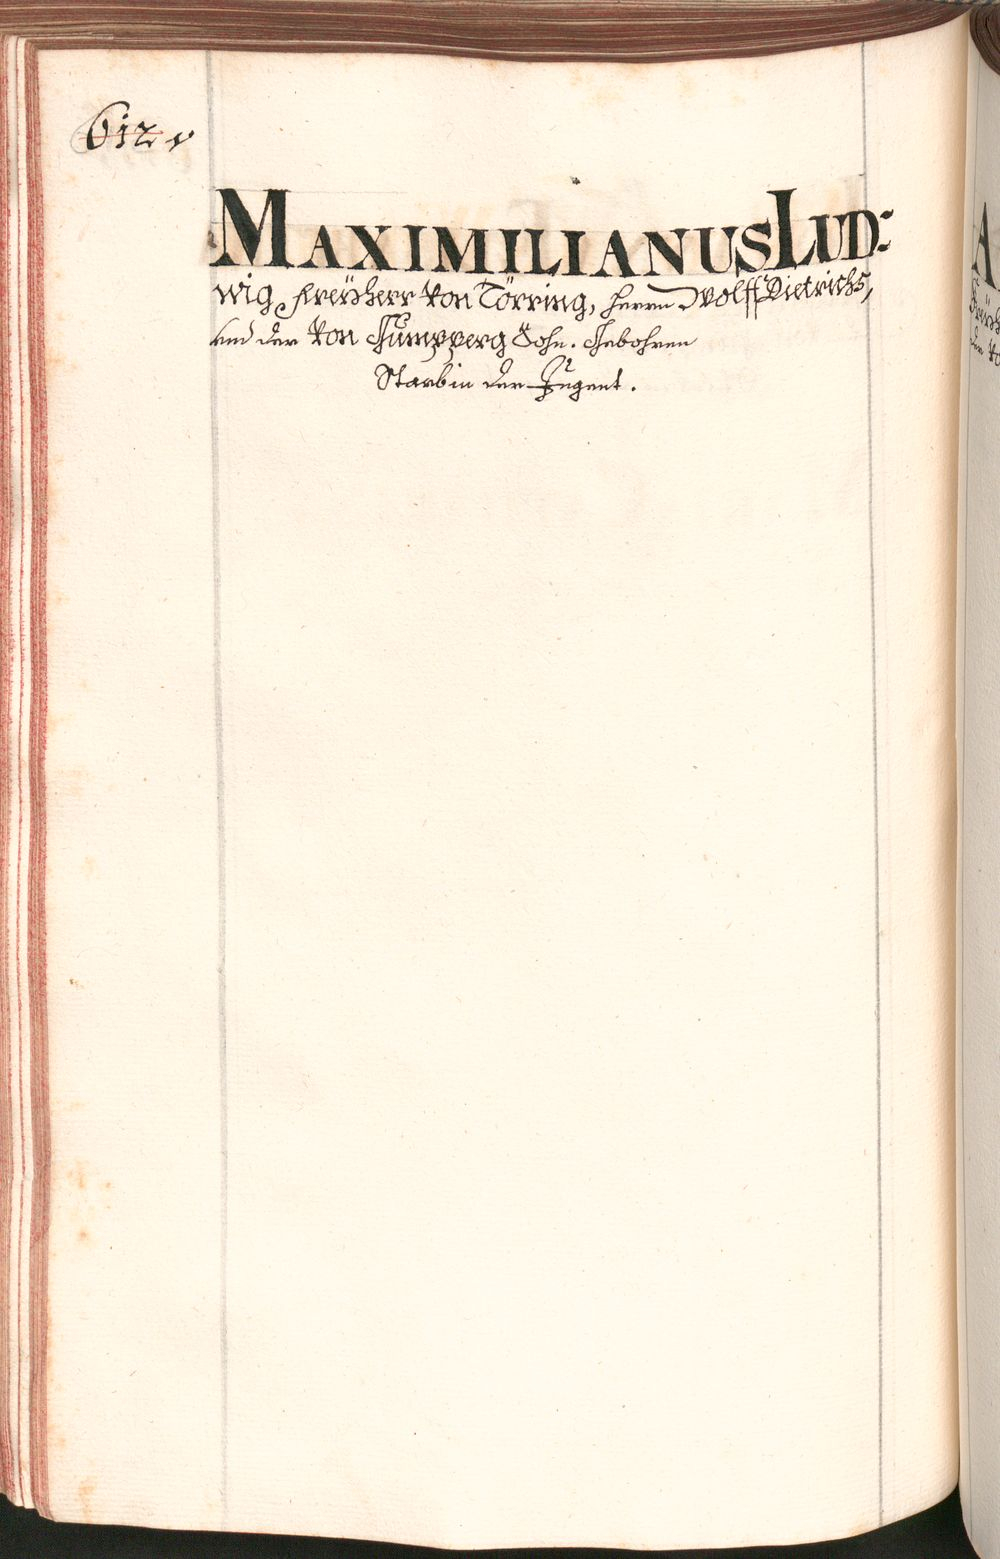 612v
MAXIMILIANUS LUD:
wig, Freÿherr von Törring, Herrn Wolff Dietrichs,
und der von Gumpperg Sohn. Gebohren
Starb in der Jugent.